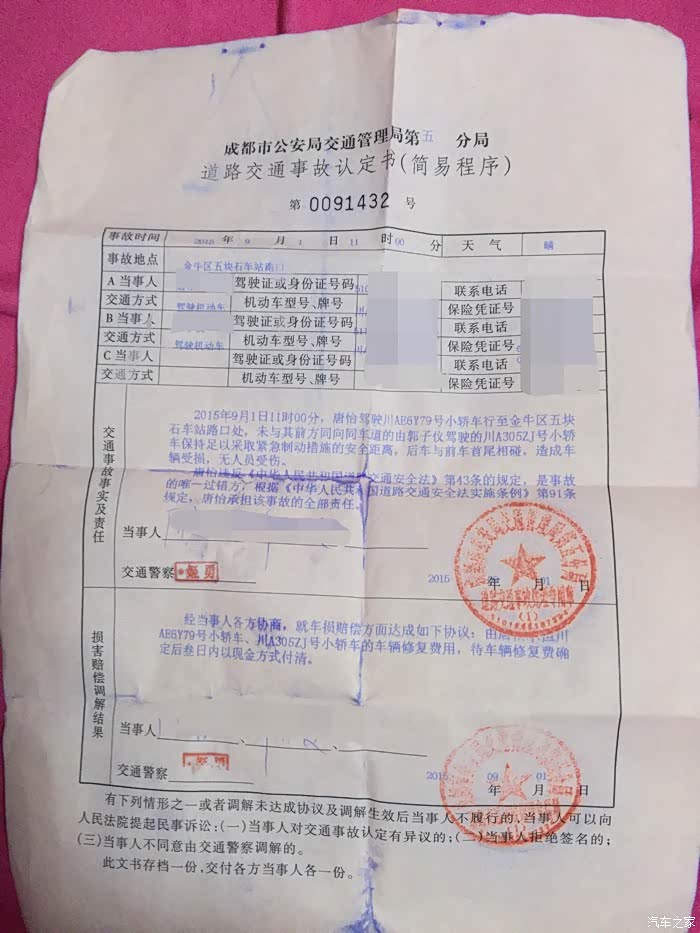 成都市公安局交通管理局第五 分局
道路交通事故认定书(简易程序)
第 0091432 号
事故时间 2015 年 9 月 1 日 11 时 00 分 天气 晴
事故地点 金牛区五块石车站路口
A当事人 驾驶证或身份证号码 联系电话
交通方式 驾驶机动车 机动车型号、牌号 保险凭证号
B当事人 驾驶证或身份证号码 联系电话
交通方式 驾驶机动车 机动车型号、牌号 保险凭证号
C当事人 驾驶证或身份证号码 联系电话
交通方式 机动车型号、牌号 保险凭证号
交通事故事实及责任
2015年9月1日11时00分，唐怡驾驶川AE6Y79号小轿车行至金牛区五块
石车站路口处，未与其前方同向同车道的由郭子仪驾驶的川A305ZJ号小轿
车保持足以采取紧急制动措施的安全距离，后车与前车首尾相碰，造成车
辆受损，无人员受伤。
唐怡违反《中华人民共和国道路交通安全法》第43条的规定，是事故
的唯一过错方，根据《中华人民共和国道路交通安全法实施条例》第91条
规定，唐怡承担该事故的全部责任。
当事人
交通警察
2015 年 月 01 日
损害赔偿调解结果
经当事人各方协商，就车损赔偿方面达成如下协议：由唐 川
AE6Y79号小轿车、川A305ZJ号小轿车的车辆修复费用，待车辆修复费确
定后叁日内以现金方式付清。
当事人
交通警察
2015 年 09 月 01 日
有下列情形之一或者调解未达成协议及调解生效后当事人不履行的，当事人可以向
人民法院提起民事诉讼：(一)当事人对交通事故认定有异议的；(二)当事人拒绝签名的；
(三)当事人不同意由交通警察调解的。
此文书存档一份，交付各方当事人各一份。
汽车之家